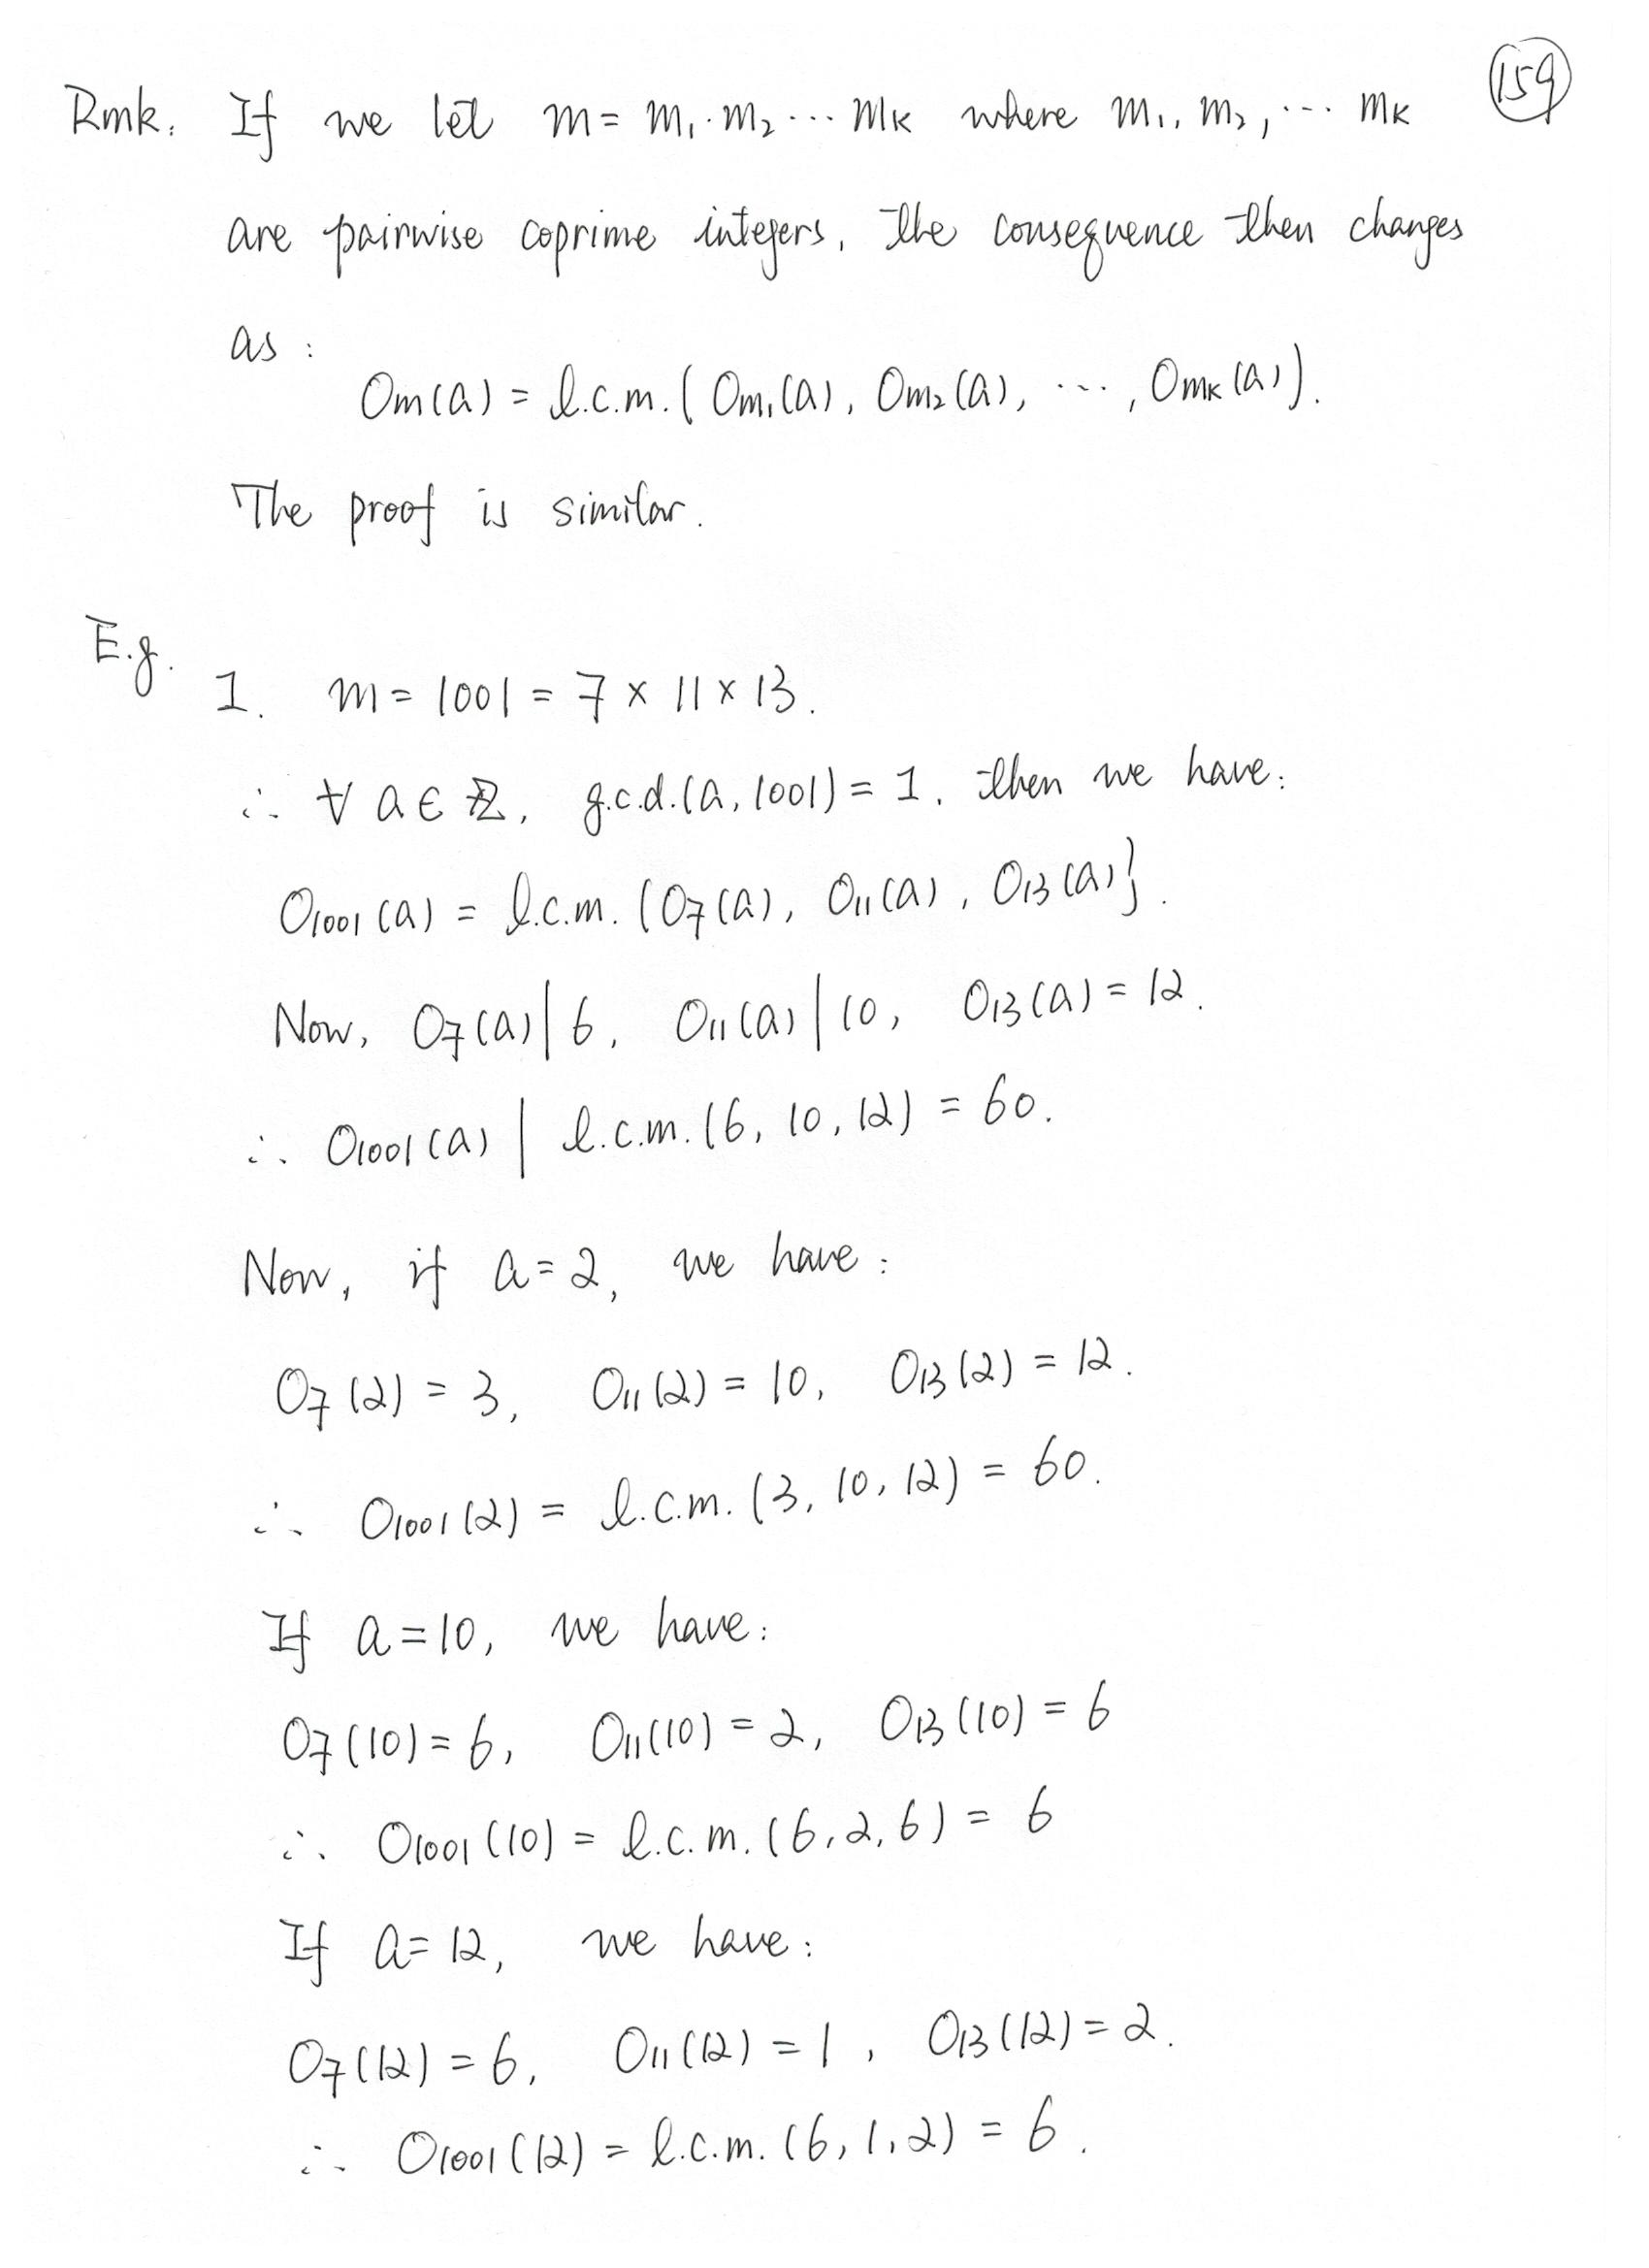 159
Rmk. If we let m = m₁·m₂ ··· mₖ where m₁, m₂, ··· mₖ
are pairwise coprime integers, the consequence then changes
as :
Oₘ(a) = l.c.m. ( Oₘ₁(a), Oₘ₂(a), ··· , Oₘₖ(a)).
The proof is similar.
E.g.
1. m = 1001 = 7 × 11 × 13.
∴ ∀ a ∈ ℤ, g.c.d.(a, 1001) = 1, then we have:
O₁₀₀₁(a) = l.c.m. (O₇(a), O₁₁(a), O₁₃(a)}.
Now, O₇(a) | 6, O₁₁(a) | 10, O₁₃(a) = 12.
∴ O₁₀₀₁(a) | l.c.m. (6, 10, 12) = 60.
Now, if a = 2, we have :
O₇(2) = 3, O₁₁(2) = 10, O₁₃(2) = 12.
∴ O₁₀₀₁(2) = l.c.m. (3, 10, 12) = 60.
If a = 10, we have :
O₇(10) = 6, O₁₁(10) = 2, O₁₃(10) = 6
∴ O₁₀₀₁(10) = l.c.m. (6, 2, 6) = 6
If a = 12, we have :
O₇(12) = 6, O₁₁(12) = 1, O₁₃(12) = 2.
∴ O₁₀₀₁(12) = l.c.m. (6, 1, 2) = 6.